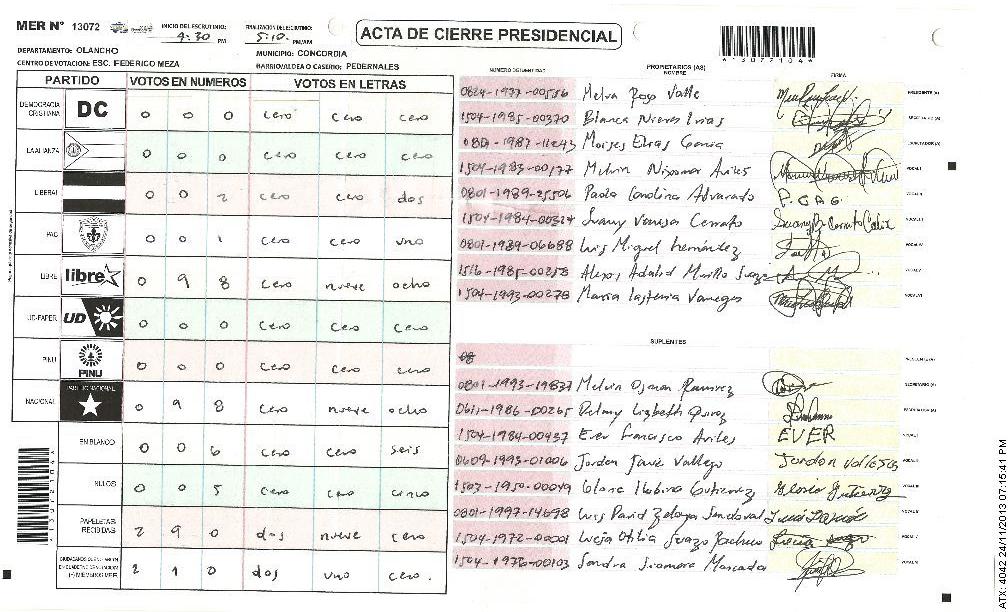 MER N° 13072 INICIO DEL ESCRUTINIO: 4:30 PM FINALIZACION DEL ESCRUTINIO: 5:10 PM/AM
ACTA DE CIERRE PRESIDENCIAL
DEPARTAMENTO: OLANCHO MUNICIPIO: CONCORDIA
CENTRO DE VOTACION: ESC. FEDERICO MEZA BARRIO/ALDEA O CASERIO: PEDERNALES
PARTIDO VOTOS EN NUMEROS VOTOS EN LETRAS
DEMOCRACIA CRISTIANA DC 0 0 0 cero cero cero
LA ALIANZA 0 0 0 cero cero cero
LIBERAL 0 0 2 cero cero dos
PAC 0 0 1 cero cero uno
LIBRE libre 0 9 8 cero nueve ocho
UD-FAPER UD 0 0 0 cero cero cero
PINU PINU 0 0 0 cero cero cero
NACIONAL PARTIDO NACIONAL 0 9 8 cero nueve ocho
EN BLANCO 0 0 6 cero cero seis
NULOS 0 0 5 cero cero cinco
PAPELETAS RECIBIDAS 2 9 0 dos nueve cero
2 1 0 dos uno cero.
NUMERO DE IDENTIDAD PROPIETARIOS (AS) NOMBRE FIRMA
0824-1937-00556 Melva Valle PRESIDENTE (A)
1504-1985-00370 Blanca Nieves SECRETARIO (A)
Moises Elias ESCRUTADOR (A)
1504-1983-00177 Melvin Nixomar Aviles VOCAL I
0801-1989-25506 Paola Carolina Alvarado P.C.A.G. VOCAL II
1504-1984-00324 Suany Vanesa Cerrato VOCAL III
0801-1989-06688 Luis Miguel Hernández VOCAL IV
1516-1985-00258 Alexis Adalid Murillo VOCAL V
1504-1993-00278 Maria Lastenia Vanegas VOCAL VI
SUPLENTES
PRESIDENTE (A)
0801-1993-19837 Melvin Osman Ramirez SECRETARIO (A)
0611-1986-00265 Delmy Lizbeth ESCRUTADOR (A)
1504-1984-00437 Ever Francisco Aviles EVER VOCAL I
0609-1993-01006 Jordon Vallejo Jordon VOCAL II
1503-1950-00049 Gutierrez Gloria Gutierrez VOCAL III
0801-1997-14698 Luis David Zelaya Sandoval VOCAL IV
1504-1972-00001 Lucia Otilia Suazo Pacheco VOCAL V
1504-1976-00103 Sandra Xiomara Moncada VOCAL VI
*130721044*
ATX: 4042 24/11/2013 07:15:41 PM